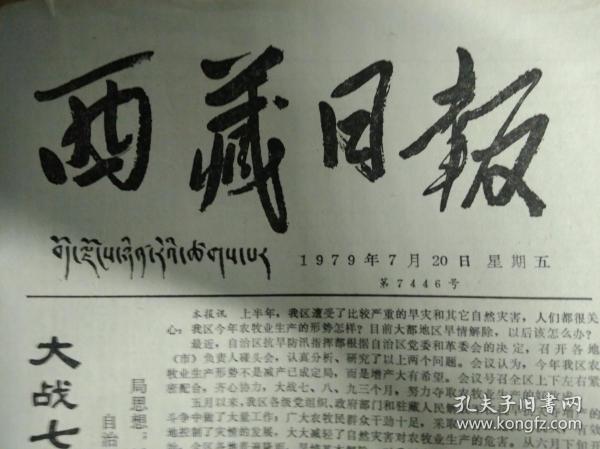 西藏日报
བོད་ལྗོངས་ཉིན་རེའི་ཚགས་པར
1979年7月20日 星期五
第7446号
大战七
局思想
自治
本报讯 上半年，我区遭受了比较严重的旱灾和其它自然灾害，人们都很关
心：我区今年农牧业生产的形势怎样？目前大部地区旱情解除，以后该怎么办？
最近，自治区抗旱防汛指挥部根据自治区党委和革委会的决定，召开各地
（市）负责人碰头会，认真分析、研究了以上两个问题。会议认为，今年我区农
牧业生产形势不是减产已成定局，而是增产大有希望。会议号召全区上下左右紧
密配合，齐心协力，大战七、八、九三个月，努力夺取
五月以来，我区各级党组织、政府部门和驻藏人民解
斗争中做了大量工作；广大农牧民群众干劲十足，采取
地控制了灾情的发展，大大减轻了自然灾害对农牧业生产的危害。从六月下旬开
孔夫子旧书网
kongfz.com